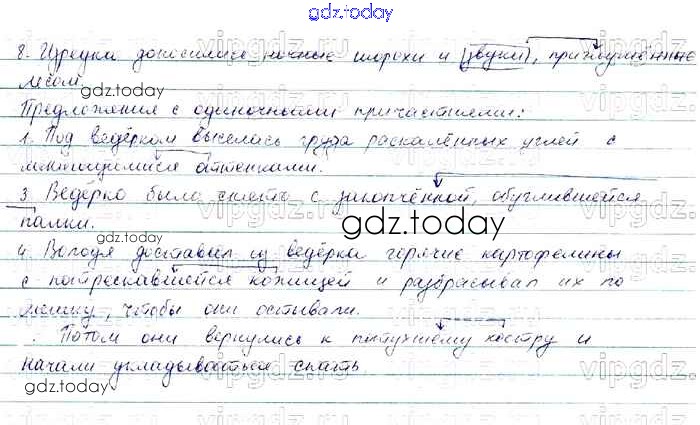 gdz.today
8. Изредка доносились ночные шорохи и звуки, приглушённые
лесом.
gdz.today
Предложения с одиночными причастиями:
1. Под ведёрком виселась груда раскалённых углей с
меняющимися оттенками.
3. Ведёрко было снято с закопчённой, обуглившейся
палки.
gdz.today
gdz.today
4. Володя доставал из ведёрка горячие картофелины
с потрескавшейся кожицей и разбрасывал их по
мешку, чтобы они остывали.
Потом они вернулись к потухшему костру и
начали укладываться спать
gdz.today
gdz.today